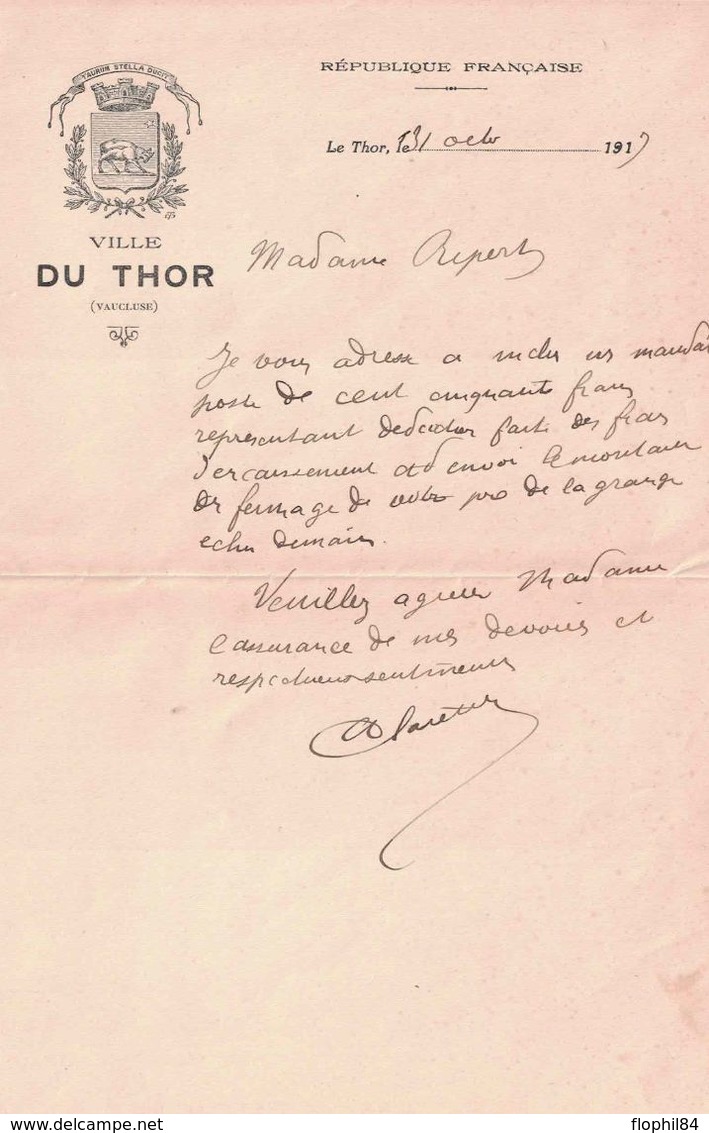 TAURUM STELLA DUCIT
RÉPUBLIQUE FRANÇAISE
Le Thor, le 31 octo 1917
VILLE
DU THOR
(VAUCLUSE)
Madame Ripert
Je vous adresse a inclus un mandat
poste de cent cinquante francs
représentant deduction faite des frais
d'encaissement et d'envoi le montant
de fermage de votre pro de la grange
echu demain.
Veuillez agreer Madame
l'assurance de mes devoués et
respectueux sentiments
delcampe.net
flophil84